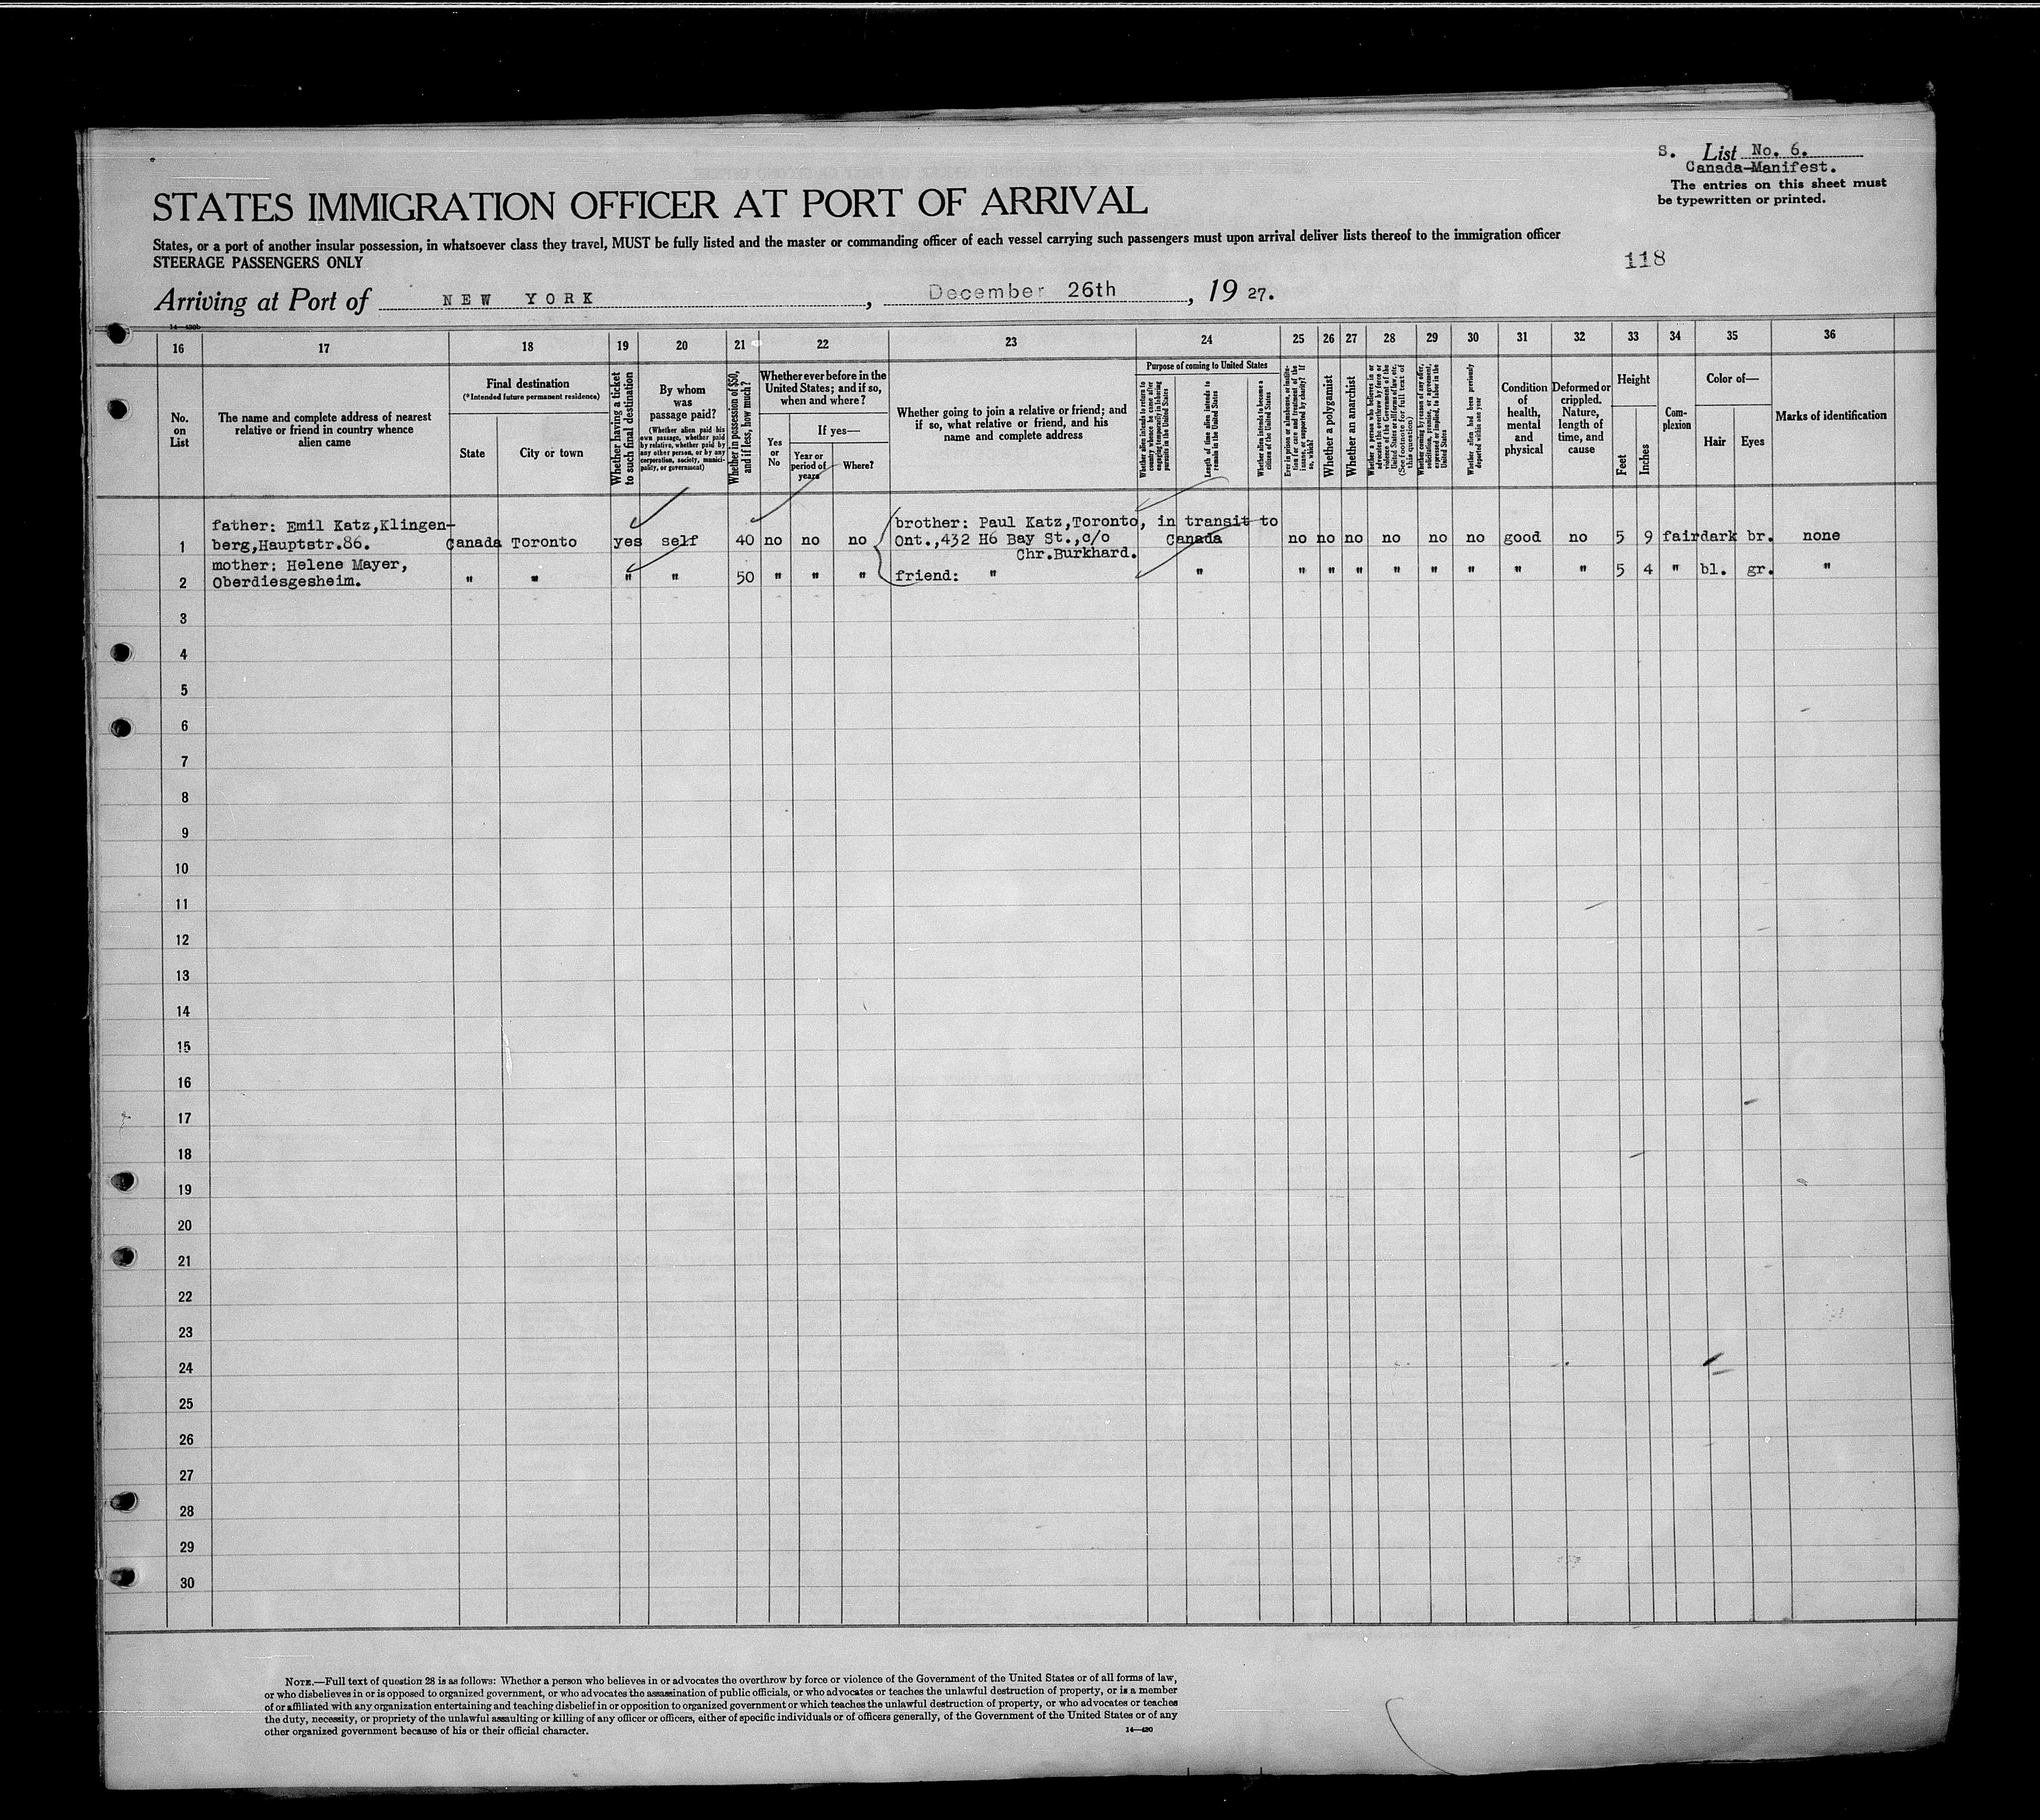 S. List No. 6.
Canada-Manifest.
The entries on this sheet must
be typewritten or printed.
STATES IMMIGRATION OFFICER AT PORT OF ARRIVAL
States, or a port of another insular possession, in whatsoever class they travel, MUST be fully listed and the master or commanding officer of each vessel carrying such passengers must upon arrival deliver lists thereof to the immigration officer
STEERAGE PASSENGERS ONLY
118
Arriving at Port of NEW YORK, December 26th, 19 27.
14—430b
16 17 18 19 20 21 22 23 24 25 26 27 28 29 30 31 32 33 34 35 36
No.
on
List
The name and complete address of nearest
relative or friend in country whence
alien came
Final destination
(*Intended future permanent residence)
State
City or town
Whether having a ticket
to such final destination
By whom
was
passage paid?
(Whether alien paid his
own passage, whether paid
by relative, whether paid by
any other person, or by any
corporation, society, munici-
pality, or government)
Whether in possession of $50,
and if less, how much?
Whether ever before in the
United States; and if so,
when and where?
Yes
or
No
If yes—
Year or
period of
years
Where?
Whether going to join a relative or friend; and
if so, what relative or friend, and his
name and complete address
Purpose of coming to United States
Whether alien intends to return to
country whence he came after
engaging temporarily in laboring
pursuits in the United States
Length of time alien intends to
remain in the United States
Whether alien intends to become a
citizen of the United States
Ever in prison or almshouse, or institu-
tion for care and treatment of the
insane, or supported by charity? If
so, which?
Whether a polygamist
Whether an anarchist
Whether a person who believes in or
advocates the overthrow by force or
violence of the Government of the
United States or all forms of law, etc.
(See footnote for full text of
this question)
Whether coming by reason of any offer,
solicitation, promise, or agreement,
expressed or implied, to labor in the
United States
Whether alien had been previously
deported within one year
Condition
of
health,
mental
and
physical
Deformed or
crippled.
Nature,
length of
time, and
cause
Height
Feet
Inches
Com-
plexion
Color of—
Hair
Eyes
Marks of identification
father: Emil Katz,Klingen-
brother: Paul Katz,Toronto, in transit to
1 berg,Hauptstr.86. Canada Toronto yes self 40 no no no Ont.,432 H6 Bay St.,c/o Canada no no no no no no good no 5 9 fair dark br. none
Chr.Burkhard.
mother: Helene Mayer,
2 Oberdiesgesheim. " " " " 50 " " " friend: " " " " " " " " " " 5 4 " bl. gr. "
3
4
5
6
7
8
9
10
11
12
13
14
15
16
17
18
19
20
21
22
23
24
25
26
27
28
29
30
NOTE.—Full text of question 28 is as follows: Whether a person who believes in or advocates the overthrow by force or violence of the Government of the United States or of all forms of law,
or who disbelieves in or is opposed to organized government, or who advocates the assassination of public officials, or who advocates or teaches the unlawful destruction of property, or is a member
of or affiliated with any organization entertaining and teaching disbelief in or opposition to organized government or which teaches the unlawful destruction of property, or who advocates or teaches
the duty, necessity, or propriety of the unlawful assaulting or killing of any officer or officers, either of specific individuals or of officers generally, of the Government of the United States or of any
other organized government because of his or their official character.
14—430